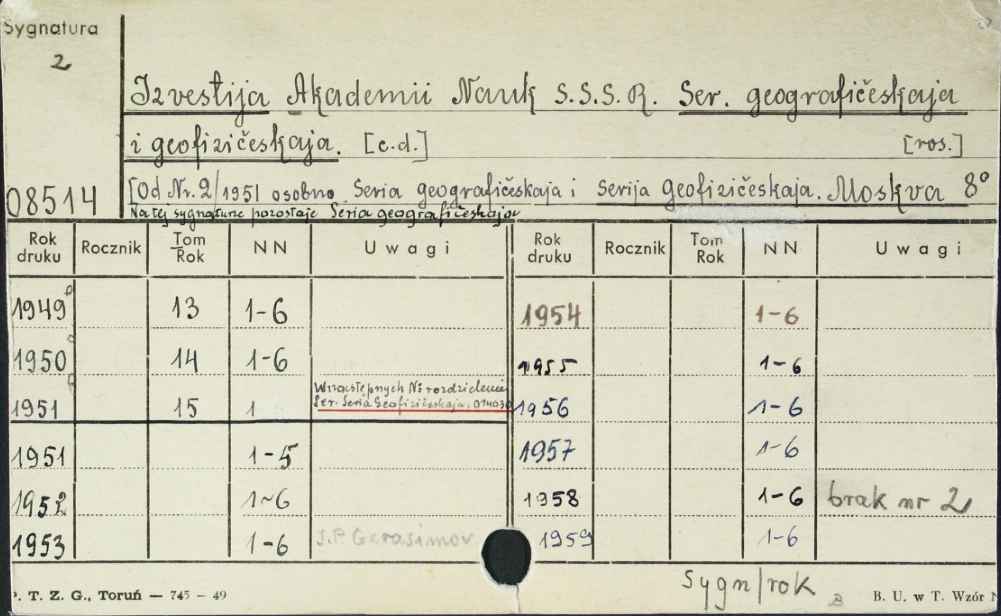 Sygnatura
2
08514
Izvestija Akademii Nauk S.S.S.R. Ser. geografičeskaja
i geofizičeskaja. [c.d.] [ros.]
[Od Nr. 2/1951 osobno Seria geografičeskaja i Serija Geofizičeskaja. Moskva 8°
Na tej sygnaturze pozostaje Seria geografičeskaja
Rok druku Rocznik Tom Rok NN Uwagi Rok druku Rocznik Tom Rok NN Uwagi
1949 13 1-6 1954 1-6
1950 14 1-6 1955 1-6
1951 15 1 W następnych Nr rozdzielenie 1956 1-6
Ser. Seria Geofizičeskaja.
1951 1-5 1957 1-6
1952 1-6 1958 1-6 brak nr 2
1953 1-6 J.P. Gerasimov 1959 1-6
Sygn/rok
P. T. Z. G., Toruń — 745 - 49 B. U. w T. Wzór